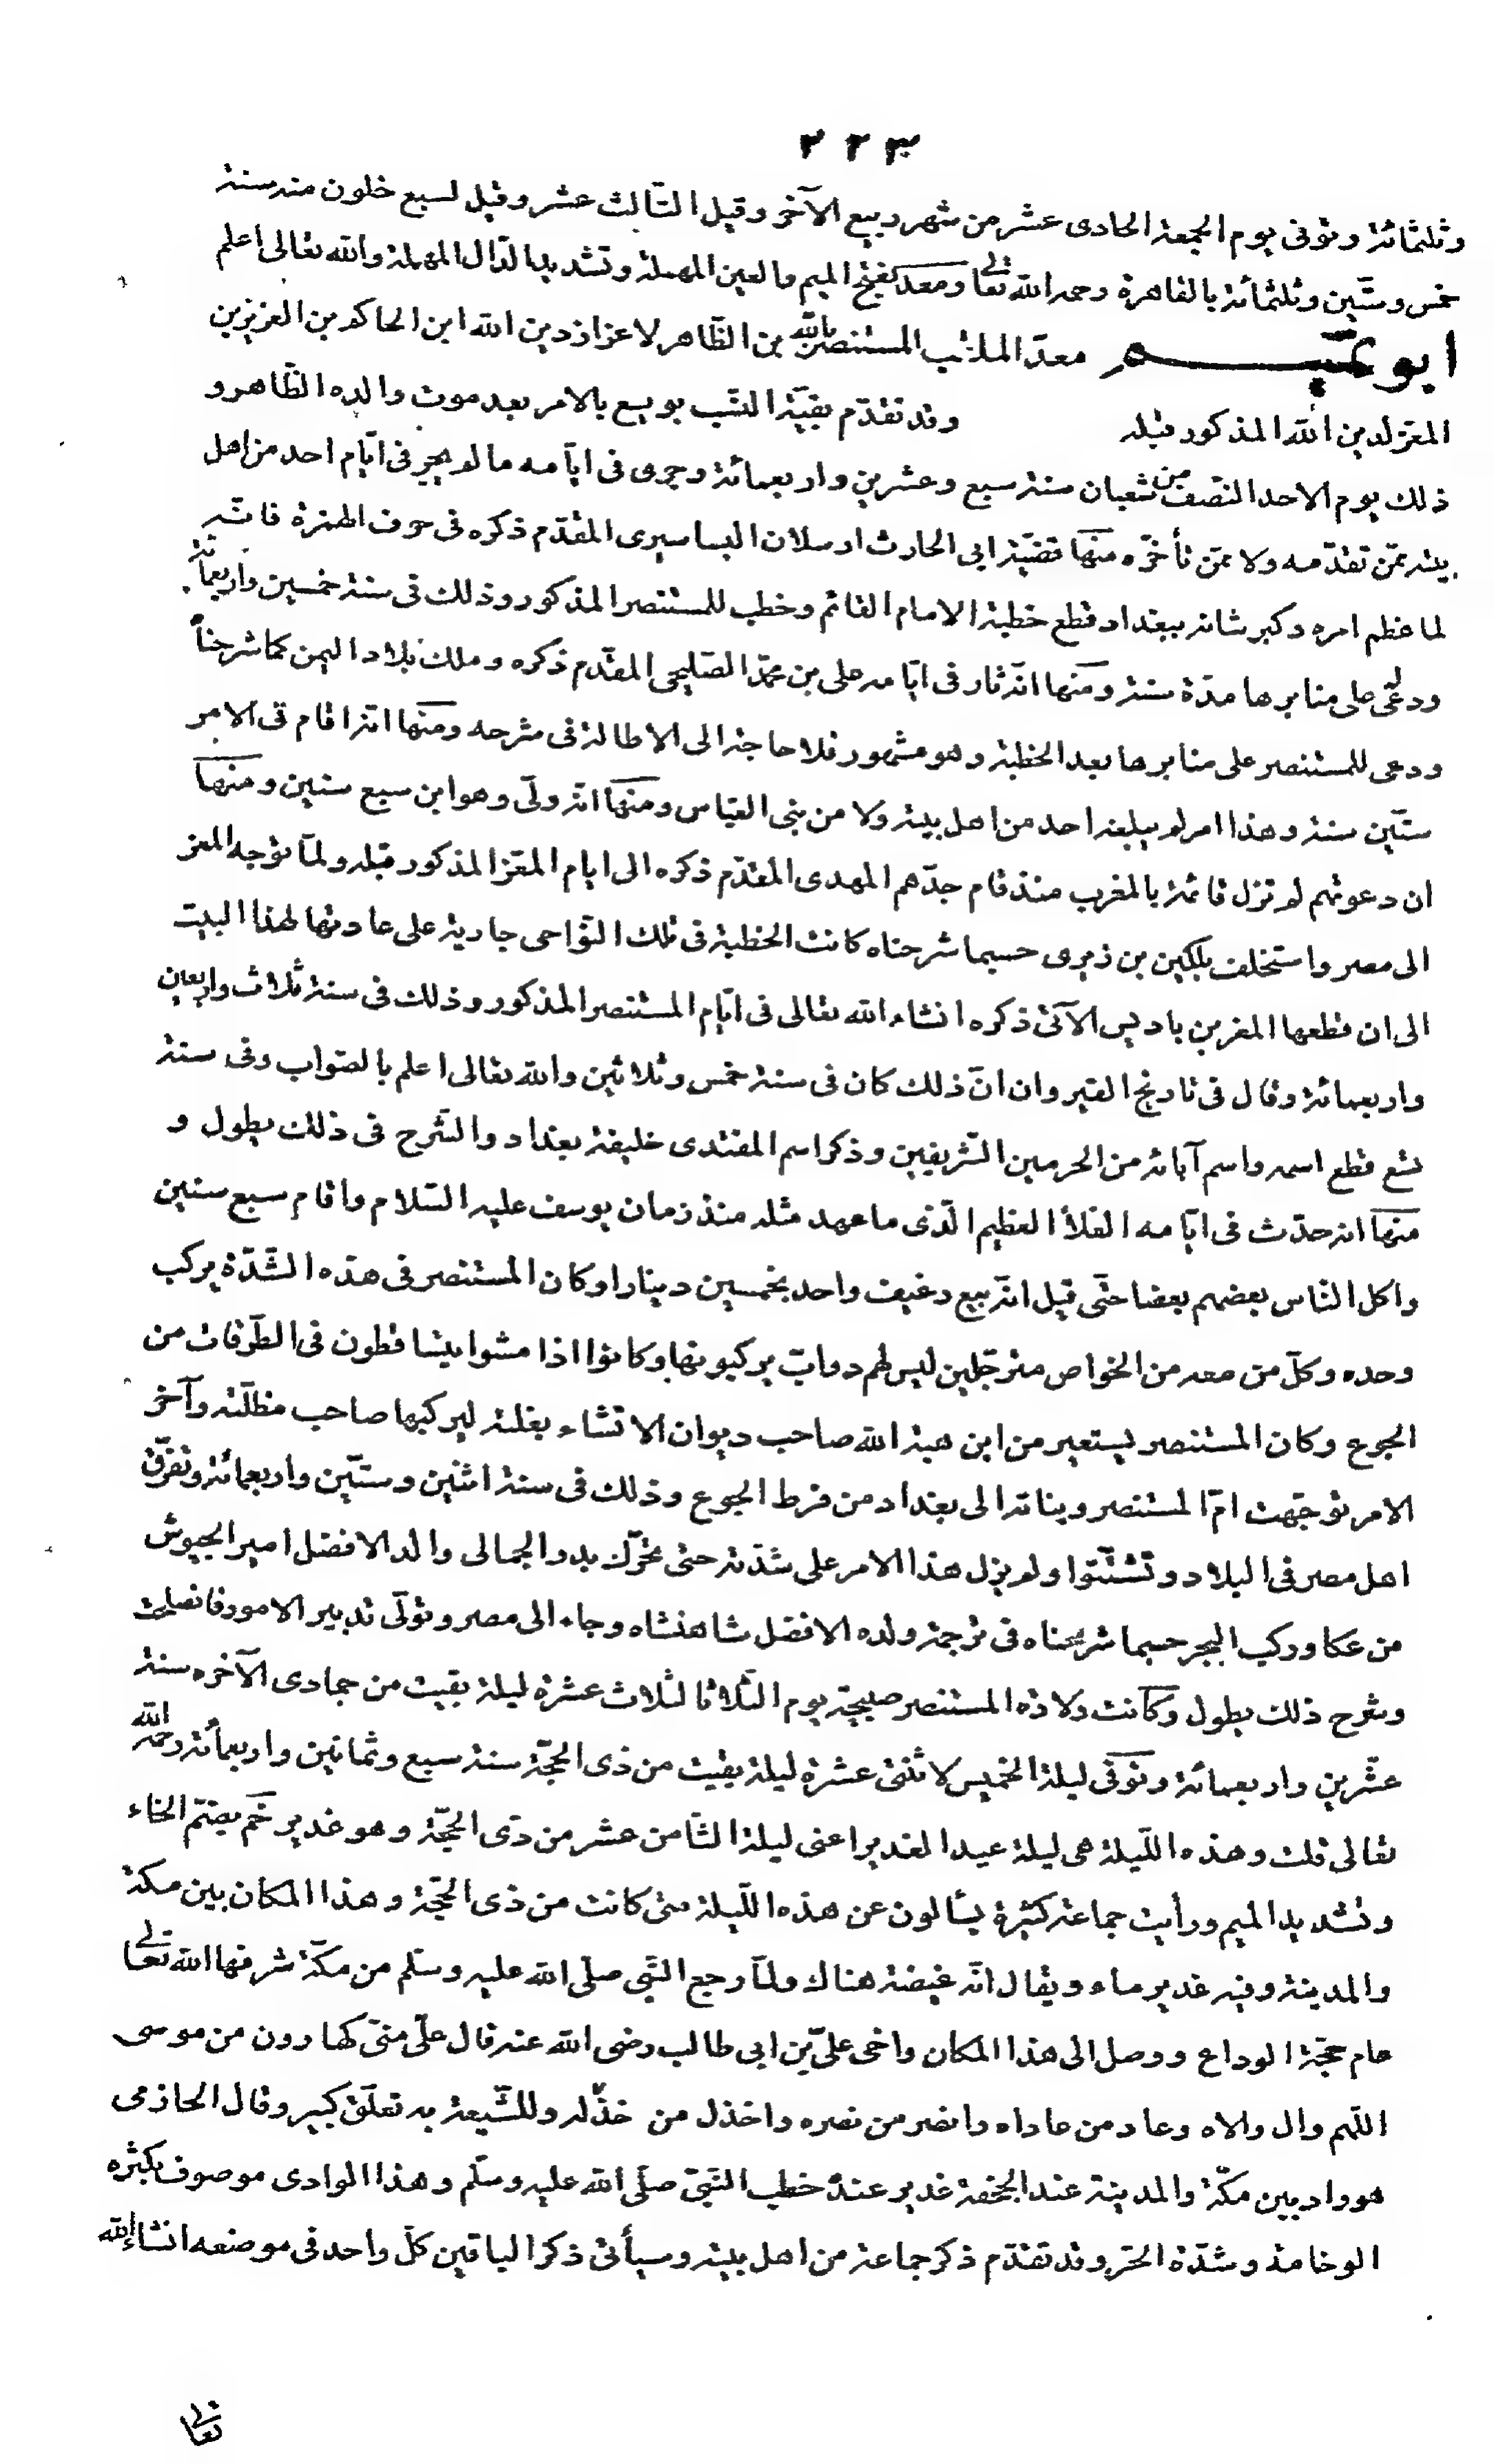 ٢٢٣
وثلثمائة وتوفى يوم الجمعة الحادى عشر من شهر ربيع الآخر وقيل الثالث عشر وقيل لسبع خلون منه سنة
خمس وستّين وثلثمائة بالقاهرة رحمه الله تعالى ومعد بفتح الميم والعين المهملة وتشديد الدّال المهملة والله تعالى اعلم
ابو تميم معدّ الملقب المستنصر بالله بن الظّاهر لاعزاز دين الله ابن الحاكم بن العزيز بن
المعز لدين الله المذكور قبله وقد تقدّم بقيّة النسب بويع بالامر بعد موت والده الظّاهر و
ذلك يوم الاحد النّصف من شعبان سنة سبع وعشرين واربعمائة وجرى فى ايّامه ما لم يجر فى ايّام احد من اهل
بيته ممّن تقدّمه ولا ممّن تأخّره منها قضيّة ابى الحارث ارسلان البساسيرى المقدّم ذكره فى حرف الهمزة فانّه
لما عظم امره وكبر شانه ببغداد قطع خطبة الامام القائم وخطب للمستنصر المذكور وذلك فى سنة خمسين واربعمائة
ودعى على منابرها مدّة سنة ومنها انّه ثار فى ايّامه على بن محمّد الصّليحى المقدّم ذكره وملك بلاد اليمن كما شرحناً
ودعى للمستنصر على منابرها بعد الخطبة وهو مشهور فلا حاجة الى الاطالة فى شرحه ومنها انّه اقام فى الامر
ستّين سنة وهذا امر لم يبلغه احد من اهل بيته ولا من بنى العبّاس ومنها انّه ولّى وهو ابن سبع سنين ومنها
ان دعوتهم لم تزل قائمة بالمغرب منذ قام جدّهم المهدى المقدّم ذكره الى ايام المعّز المذكور قبله ولمّا توجه المعز
الى مصر واستخلف بلكين بن زيرى حسبما شرحناه كانت الخطبة فى تلك النّواحى جارية على عادتها لهذا البيت
الى ان قطعها المعز بن باديس الآتى ذكره انشاء الله تعالى فى ايّام المستنصر المذكور وذلك فى سنة ثلاث واربعين
واربعمائة وقال فى تاريخ القيروان انّ ذلك كان فى سنة خمس وثلاثين والله تعالى اعلم بالصّواب وفى سنة
تسع قطع اسمه واسم آبائه من الحرمين الشّريفين وذكر اسم المقتدى خليفة بغداد والشّرح فى ذلك يطول و
منها انه حدّث فى ايّامه الغلأ العظيم الّذى ما عهد مثله منذ زمان يوسف عليه السّلام واقام سبع سنين
واكل النّاس بعضهم بعضا حتّى قيل انّه بيع رغيف واحد بخمسين دينارا وكان المستنصر فى هذه الشّدّة يركب
وحده وكلّ من معه من الخواص مترجّلين ليس لهم دوابّ يركبونها وكانوا اذا مشوا يتساقطون فى الطّرقات من
الجوع وكان المستنصر يستعير من ابن هبة الله صاحب ديوان الانشاء بغلته ليركبها صاحب مظلّته وآخر
الامر توجّهت امّ المستنصر وبناته الى بغداد من فرط الجوع وذلك فى سنة اثنين وستّين واربعمائة وتفرّق
اهل مصر فى البلاد وتشتّتوا ولم يزل هذا الامر على شدّته حتى تحرّك بدر الجمالى والد الافضل امير الجيوش
من عكا وركب البحر حسبما شرحناه فى ترجمة ولده الافضل شاهنشاه وجاء الى مصر وتولّى تدبير الامور فانصلحت
وشرح ذلك يطول وكانت ولادة المستنصر صبيحة يوم الثّلاثا لثلاث عشرة ليلة بقيت من جمادى الآخره سنة
عشّرين واربعمائة وتوفّى ليلة الخميس لاثنتى عشرة ليلة بقيت من ذى الحجّة سنة سبع وثمانين واربعمائة رحمه الله
تعالى قلت وهذه اللّيلة هى ليلة عيد الغدير اعنى ليلة الثّامن عشر من ذى الحجّة وهو غدير خم بضمّ الخاء
وتشديد الميم ورأيت جماعة كثيرة يسألون عن هذه اللّيلة متى كانت من ذى الحجّة وهذا المكان بين مكة
والمدينة وفيه غدير ماء ويقال انّه غيضة هناك ولمّا رجع النّبى صلّى الله عليه وسلّم من مكّة شرفها الله تعالى
عام حجّة الوداع ووصل الى هذا المكان واخى علىّ بن ابى طالب رضى الله عنه قال علىّ منىّ كهارون من موسى
اللّهم وال والاه وعاد من عاداه وانصر من نصره واخذل من خذله وللشّيعة به تعلّق كبير وقال الحازمى
هو واد بين مكّة والمدينة عند الجحفة غدير عنده خطب النّبىّ صلّى الله عليه وسلّم وهذا الوادى موصوف بكثره
الوخامة وشدّة الحرّ وقد تقدّم ذكر جماعة من اهل بيته وسيأتى ذكر الباقين كلّ واحد فى موضعه انشاء الله
تعالى